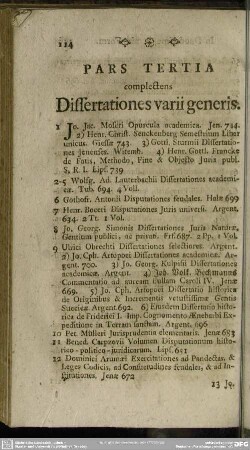 114
PARS TERTIA
complectens
Dissertationes varii generis.
1 Jo. Jac. Mosleri Opuscula academica. Jen. 744.
2) Henr. Christ. Senckenberg Semestrium Liber
unicus. Giessæ 743. 3) Gottl. Sturmii Dissertatio-
nes Jenenses. Witemb. 4) Henr. Gottl. Francke
de Fatis, Methodo, Fine & Objecto Juris publ.
S. R. I. Lips. 739
2-5 Wolfg. Ad. Lauterbachii Dissertationes academi-
cæ. Tub. 694. 4 Voll.
6 Gothofr. Antonii Disputationes feudales. Halæ 699
7 Henr. Boceri Disputationes Juris universi. Argent.
634. 2 Tr. 1 Vol.
8 Jo. Georg. Simonis Dissertationes Juris Naturæ,
Gentium publici, ac privati. Frf. 687. 2 Pp. 1 Vol.
9 Ulrici Obrechti Dissertationes selectiores. Argent.
2) Jo. Cph. Artopoei Dissertationes academicæ. Ar-
gent. 700. 3) Jo. Georg. Kulpisii Dissertationes
academicæ. Argent.
Commentatio ad aureum bullam Caroli IV. Jenæ
669. 5) Jo. Cph. Artopoei Dissertatio historica
de Originibus & Incrementis vetustissimæ Gentis
Sueticæ Argent. 692. 6) Ejusdem Dissertatio histo-
rica de Friderici I. Imp. Cognomento Ænobarbi Ex-
peditione in Terram sanctam. Argent. 696
10 Pet. Mülleri Jurisprudentia elementaris. Jenæ 683
11 Bened. Carpzovii Volumen Disputationum histo-
rico-politico-juridicarum. Lips. 651
12 Dominici Arumæi Exercitationes ad Pandectas, &
Leges Codicis, ad Consuetudines feudales, & ad In-
stitutiones. Jenæ 672
13 Jo.